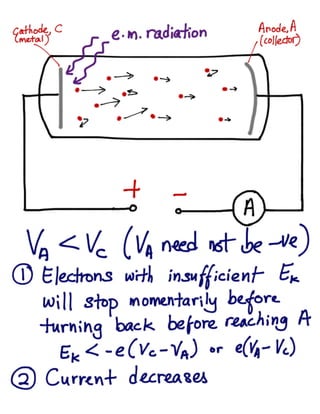 Cathode, C
(metal)
e.m. radiation
Anode, A
(collector)
+ −
A
V_A < V_C (V_A need not be -ve)
① Electrons with insufficient E_K
will stop momentarily before
turning back before reaching A
E_K < -e(V_C-V_A) or e(V_A-V_C)
② Current decreases